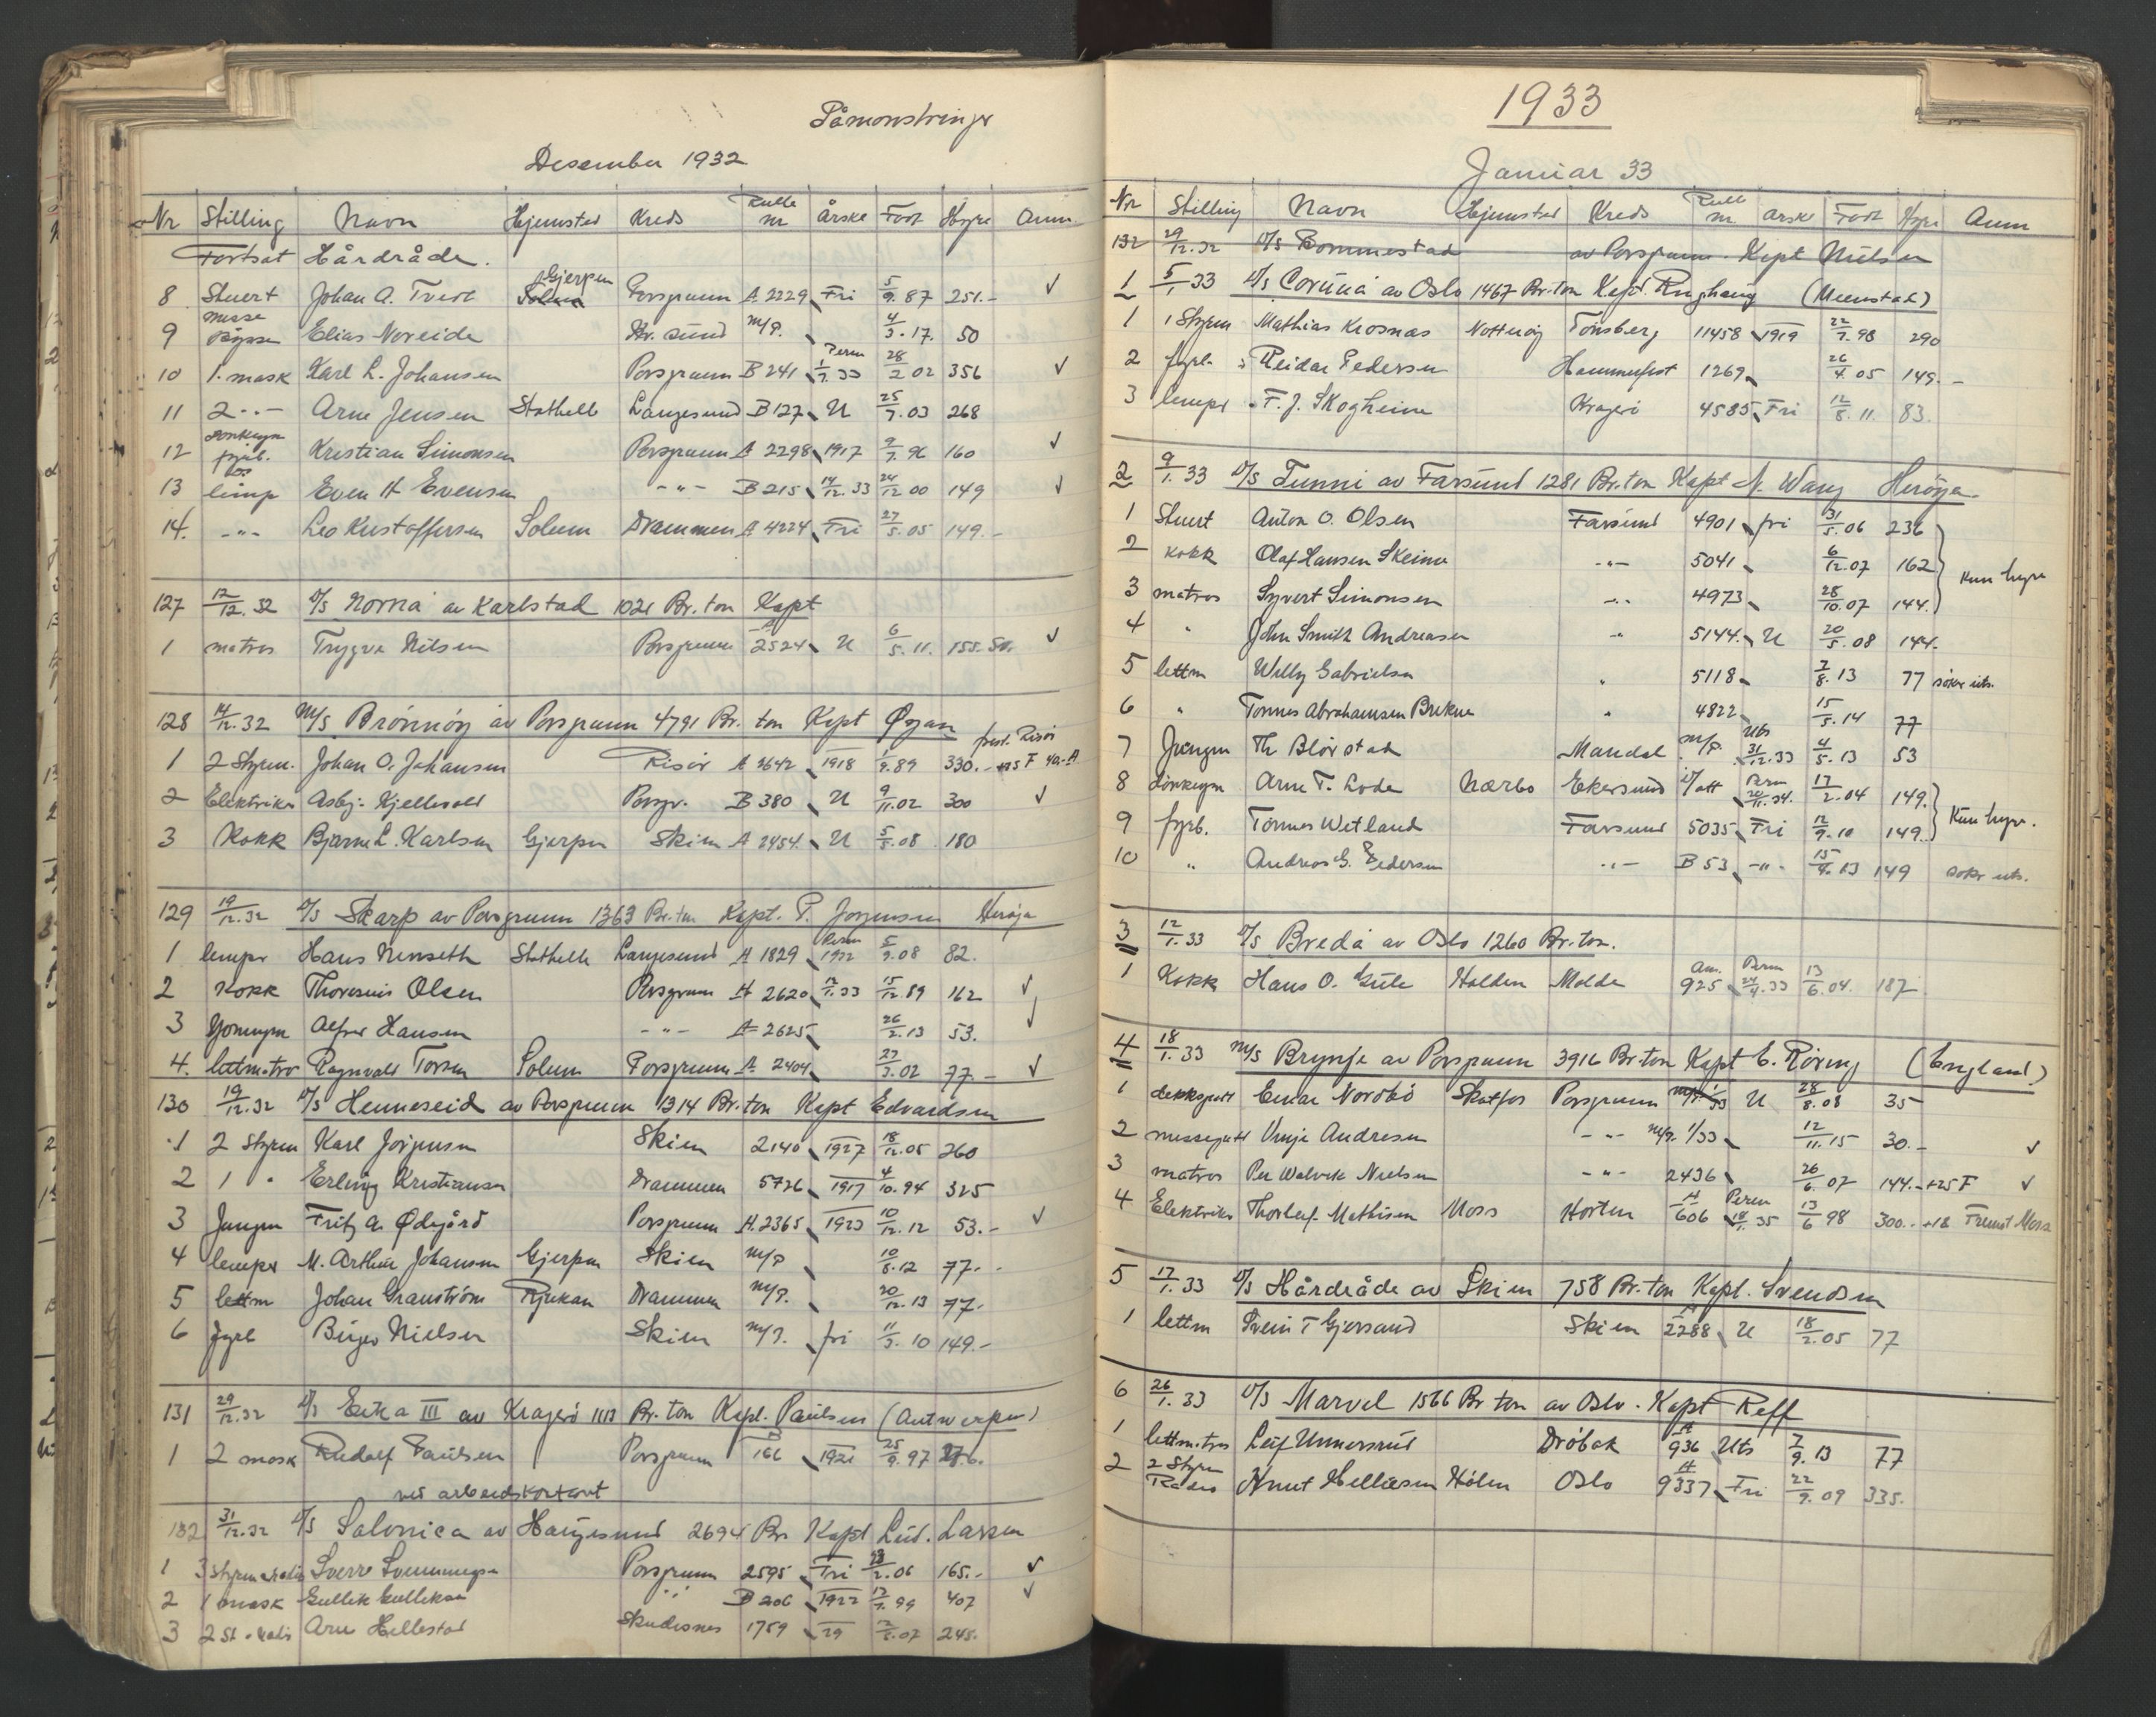 Påmonstringer
Desember 1932
Nr Stilling Navn Hjemsted Kreds Rulle nr Årskl Født Hyre Anm
Fortsat Hårdråde.
8 Stuert Johan A. Tvedt Gjerpen Porsgrunn A. 2229 Fri 5/9. 87 251.- ✓
9 messe Elias Noreide Kr. sund m/p. 4/3. 17. 50
10 1. mask Karl L. Johansen Porsgrunn B 241 Perm 1/7. 33 28/2 02 356 ✓
11 2 -"- Arne Jensen Stathelle Langesund B 127 U 25/7. 03 268
12 donkeym fyrb. Kristian Simonsen Porsgrunn A 2298 1917 9/7. 96 160 ✓
13 lemp Even H Evensen -"- B 215 14/12. 33 24/12 00 149 ✓
14. -"- Leo Kristoffersen Solum Drammen A 4224 Fri 27/5. 05 149.-
127 12/12. 32 D/s Norna av Karlstad 1021 Br. ton Kapt
1 matros Trygve Nilsen Porsgrunn A 2524 U 6/5. 11. 155. Sv. ✓
128 14/12. 32 M/s Brönnöy av Porsgrunn 4791 Br. ton Kapt Øyan
1 2 Styrm. Johan O. Johansen Risör A 2642 1918 1/9. 89 330.- +25 F frast. Risör
2 Elektriker Asbj. Kjellevold Porsgr. B 380 U 9/11. 02 300 ✓
3 Kokk Bjarne L. Karlsen Gjerpen Skien A 2454. U 5/5. 08 180
129 19/12. 32 D/s Skarp av Porsgrunn 1363 Br. ton Kapt. P. Jorgensen Heröja
1 lemper Hans Nenseth Stathelle Langesund A 1829 Perm 1922 5/9. 08 82.
2 Kokk Thoresius Olsen Porsgrunn A 2620 12/1. 33 15/12. 89 162 ✓
3 Yonngm Alfred Hansen -"- A 2625 26/2. 13 53. ✓
4. lettmatro Ragnvald Torsen Solum Porsgrunn A 2404 27/3. 02 77.- ✓
130 19/12. 32 D/s Henneseid av Porsgrunn 1314 Br. ton Kapt Edvardsen
1 2 Styrm Karl Jörgensen Skien 2140 1927 18/12. 05 260
2 1 " Erling Kristiansen Drammen 5726 1917 4/10. 94 325
3 Jungm Fritz A. Ødegård Porsgrunn A. 2365 1923 10/12. 12 53.- ✓
4 lemper M. Arthur Johansen Gjerpen Skien m/p 10/8. 12 77.-
5 lettm Johan Granström Rjukan Drammen m/p. 20/12. 13 77.-
6 fyrb Birger Nielsen Skien m/p. fri 11/3. 10 149.-
131 29/12. 32 D/s Erika III av Kragerö 1113 Br. ton Kapt. Paulsen (Antwerpen)
1 2 mask Rudolf Paulsen Porsgrunn B 166 1921 25/9. 97 276.
ved arbeidskontort
132 31/12. 32 D/s Salonica av Haugesund 2694 Br Kapt Leid. Larsen
1 3 styrm radio Sverre Svenningsen Porsgrunn 2595 Fri 23/2. 06 165.- ✓
2 1 mask Gullik Gulliksen -"- B 206 1922 12/7. 99 407 ✓
3 2 St. radio Arne Hellestad Skudesnes 1759 29 12/5. 07 245.
1933
Januar 33
Nr Stilling Navn Hjemsted Kreds Rull nr. årskl Født Hyre Anm
132 29/12. 32 D/s Bommestad av Porsgrunn. Kapt Nielsen
1 5/1 33 D/s Coruna av Oslo 1467 Br. ton Kapt. Ringhaug (Menstad)
1 1 Styrm Mathias Krosnas Notteröy Tönsberg 11458 1919 22/7. 98 290
2 fyrb. Reidar Pedersen Hammerfest 1269 26/4. 05 149.-
3 lemper F. J. Skogheim Kragerö 4585 Fri 12/8. 11. 83.
2 9/1. 33 D/s Tunni av Farsund 1281 Br. ton Kapt N. Wang Heröya
1 Stuert Anton O. Olsen Farsund 4901 fri 31/5. 06 236
2 Kokk Olaf Hansen Skeime -"- 5041 6/12. 07 162 Kun hyre
3 matros Syvert Simonsen -"- 4973 28/10. 07 144.
4 " John Smith Andreasen " 5144. U 20/5. 08 144.
5 lettm Willy Gabrielsen " 5118 7/8. 13 77 söke uts.
6 " Tönnes Abrahamsen Brekne " 4822 15/5. 14 77
7 Jungm Th. Blörstad Mandal m/p. Uts 31/12. 33 4/5. 13 53
8 Donkeym Arne T. Lode Nærbö Ekersund V/att Perm 20/11. 34. 17/2. 04 149.
9 fyrb. Tönnes Wetland Farsund 5035 Fri 12/9. 10 149. Kun hyre.
10 " Andreas G. Pedersen -"- B 53 -"- 15/9. 13 149 söke uts.
3 12/1. 33 D/s Breda av Oslo 1260 Br. ton.
1 Kokk Hans O. Gule Halden Molde Am. 925 Perm 24/4. 33 13/6. 04. 187
4 18/1. 33 M/s Brynje av Porsgrunn 3916 Br. ton Kapt E. Röring (England)
1 dekksgutt Einar Nordbö Skotfos Porsgrunn m/p. 33 U 28/8. 08 35
2 messegutt Vinje Andresen -"- m/p. 1/33 12/11. 15 30.- ✓
3 matros Per Walvik Nielsen -"- 2436 26/6. 07 144.- +25 F ✓
4 Elektriker Thorleif Mathisen Moss Horten A 606 Perm 18/1. 35 13/6 98 300.- +18 Fremst Moss
5 17/1. 33 D/s Hårdråde av Skien 758 Br. ton Kapt. Svendsen
1 lettm Svein T Gjersand Skien A 2288 U 18/2. 05 77
6 26/1. 33 D/s Marvel 1566 Br ton av Oslo. Kapt Reff
1 lettmatros Leif Unnersrud Dröbak A 936 Uts 7/9. 13 77
2 2 Styrm Radio Knut Helliesen Holen Oslo A 9337 Fri 22/9. 09 335.